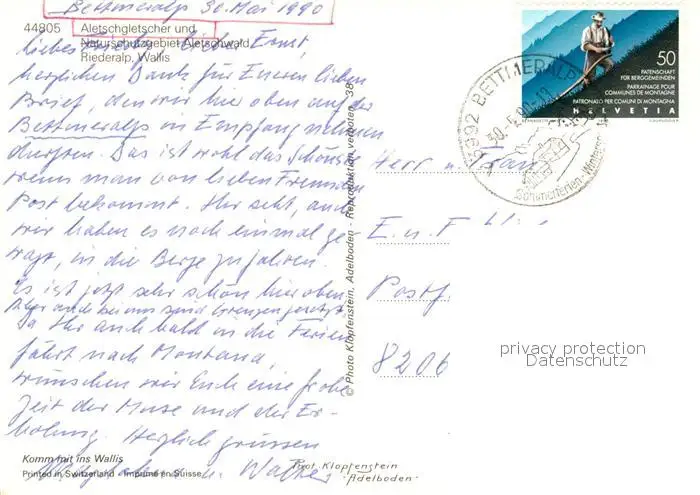 Bettmeralp 30. Mai 1990
44805 Aletschgletscher und
Naturschutzgebiet Aletschwald
Riederalp, Wallis
Ernst,
herzlichen Dank für Eueren lieben
Brief, den wir hier oben auf der
Bettmeralp in Empfang nehmen
durften. Das ist wohl das Schönste
wenn man von lieben Freunden
Post bekommt. Ihr seht, auch
wir haben es noch einmal ge
wagt, in die Berge zu fahren.
Es ist jetzt sehr schön hier oben.
Da Ihr auch bald in die Ferien
fährt nach Montana,
wünschen wir Euch eine frohe
Zeit der Muse und der Er-
holung. Herzlich grüssen
u. Walter
Komm mit ins Wallis
Printed in Switzerland • Imprimé en Suisse
© Photo Klopfenstein, Adelboden - Reproduktion verboten 38
50
PATENSCHAFT
FÜR BERGGEMEINDEN
PARRAINAGE POUR
COMMUNES DE MONTAGNE
PATRONATO PER COMUNI DI MONTAGNA
HELVETIA
3992 BETTMERALP
30.5.90
Sommerferien-Winter
Herr u. Frau
E. u. F
Postf.
8206
privacy protection
Datenschutz
Phot. Klopfenstein
Adelboden